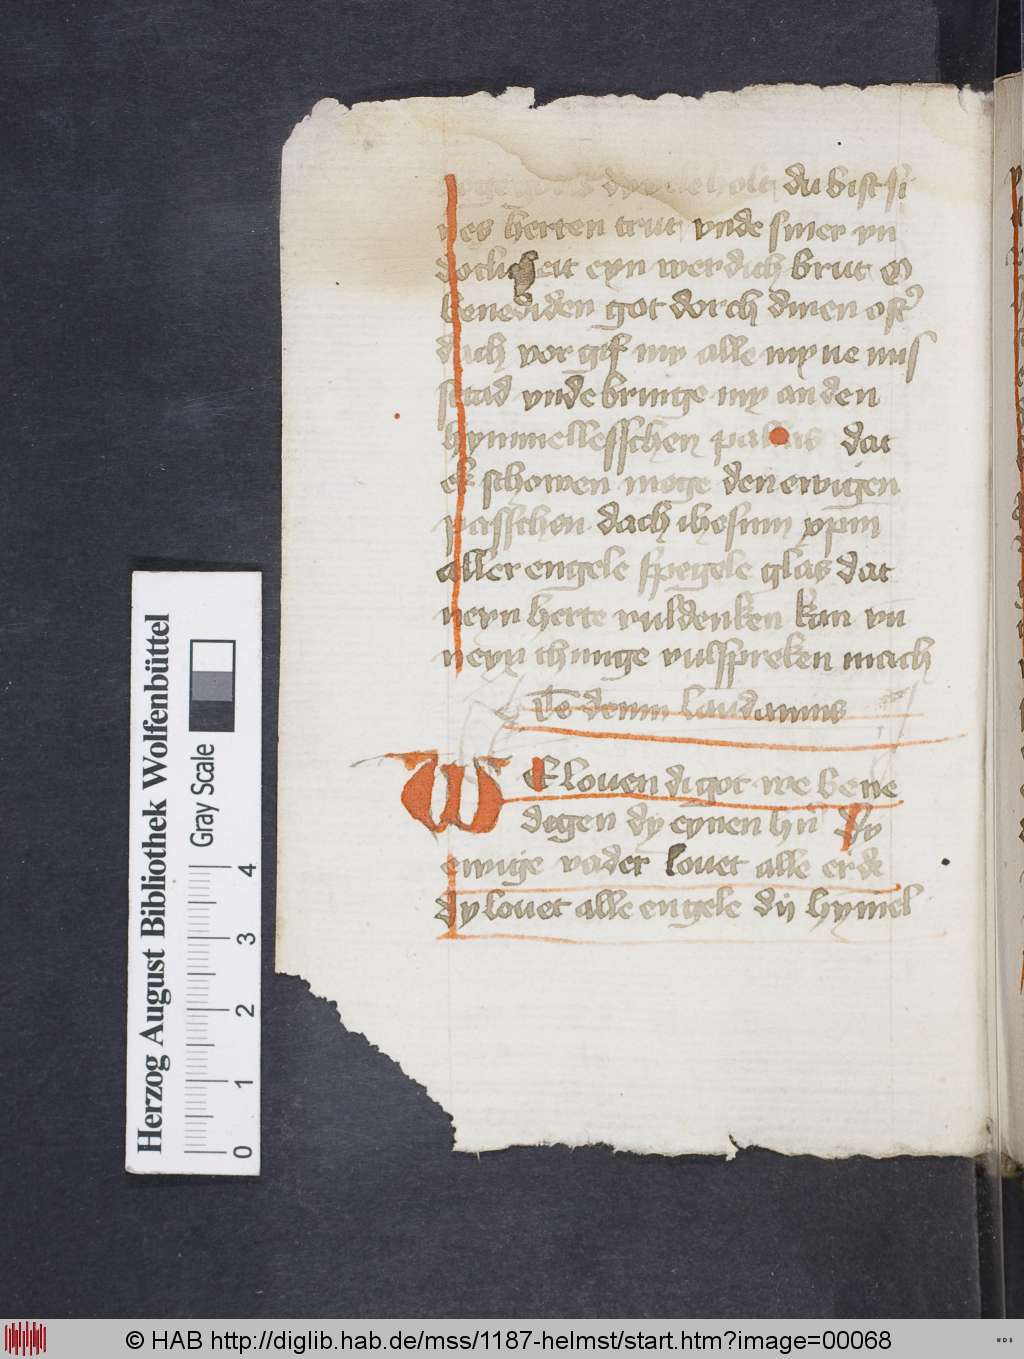 dy vele holt du bist si
nes herten trut vnde siner yn
dochticheit eyn werdich brut O
benediden got dorch dinen ost᷑
dach vor gif my alle myne mis
setad vnde bringe my an den
hymmellesschen pallas dat
ek schowen moge den ewigen
passchen dach ihesum xpm
aller engele spegele glas dat
neyn herte vuldenken kan vn̄
neyn thunge vulspreken mach
Te deum laudamus
WE louen di got we bene
digen dy eynen hn̄ Dy
ewige vader louet alle erde
dy louet alle engele dy hymel
Herzog August Bibliothek Wolfenbüttel
Gray Scale
0 1 2 3 4
© HAB http://diglib.hab.de/mss/1187-helmst/start.htm?image=00068